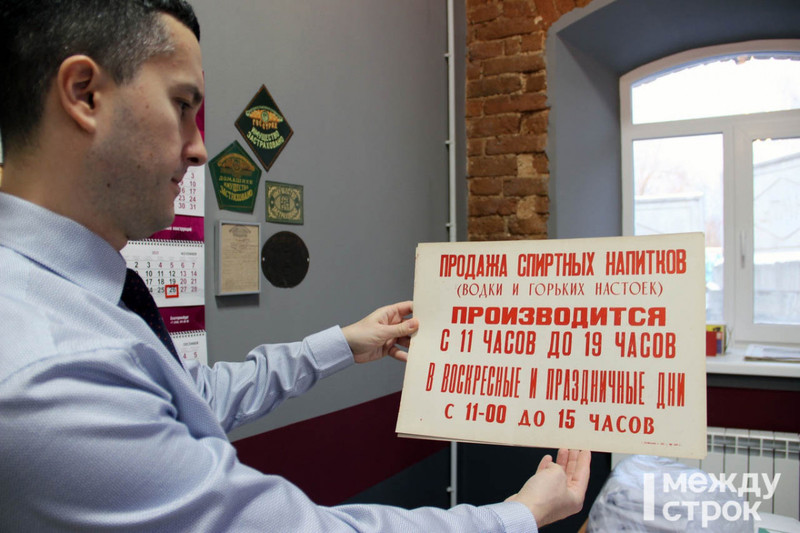 ИМУЩЕСТВО
ЗАСТРАХОВАНО
ДОМАШНЕЕ
ИМУЩЕСТВО
ЗАСТРАХОВАНО
ПРОДАЖА СПИРТНЫХ НАПИТКОВ
(ВОДКИ И ГОРЬКИХ НАСТОЕК)
ПРОИЗВОДИТСЯ
С 11 ЧАСОВ ДО 19 ЧАСОВ
В ВОСКРЕСНЫЕ И ПРАЗДНИЧНЫЕ ДНИ
С 11-00 ДО 15 ЧАСОВ
МЕЖДУ
СТРОК